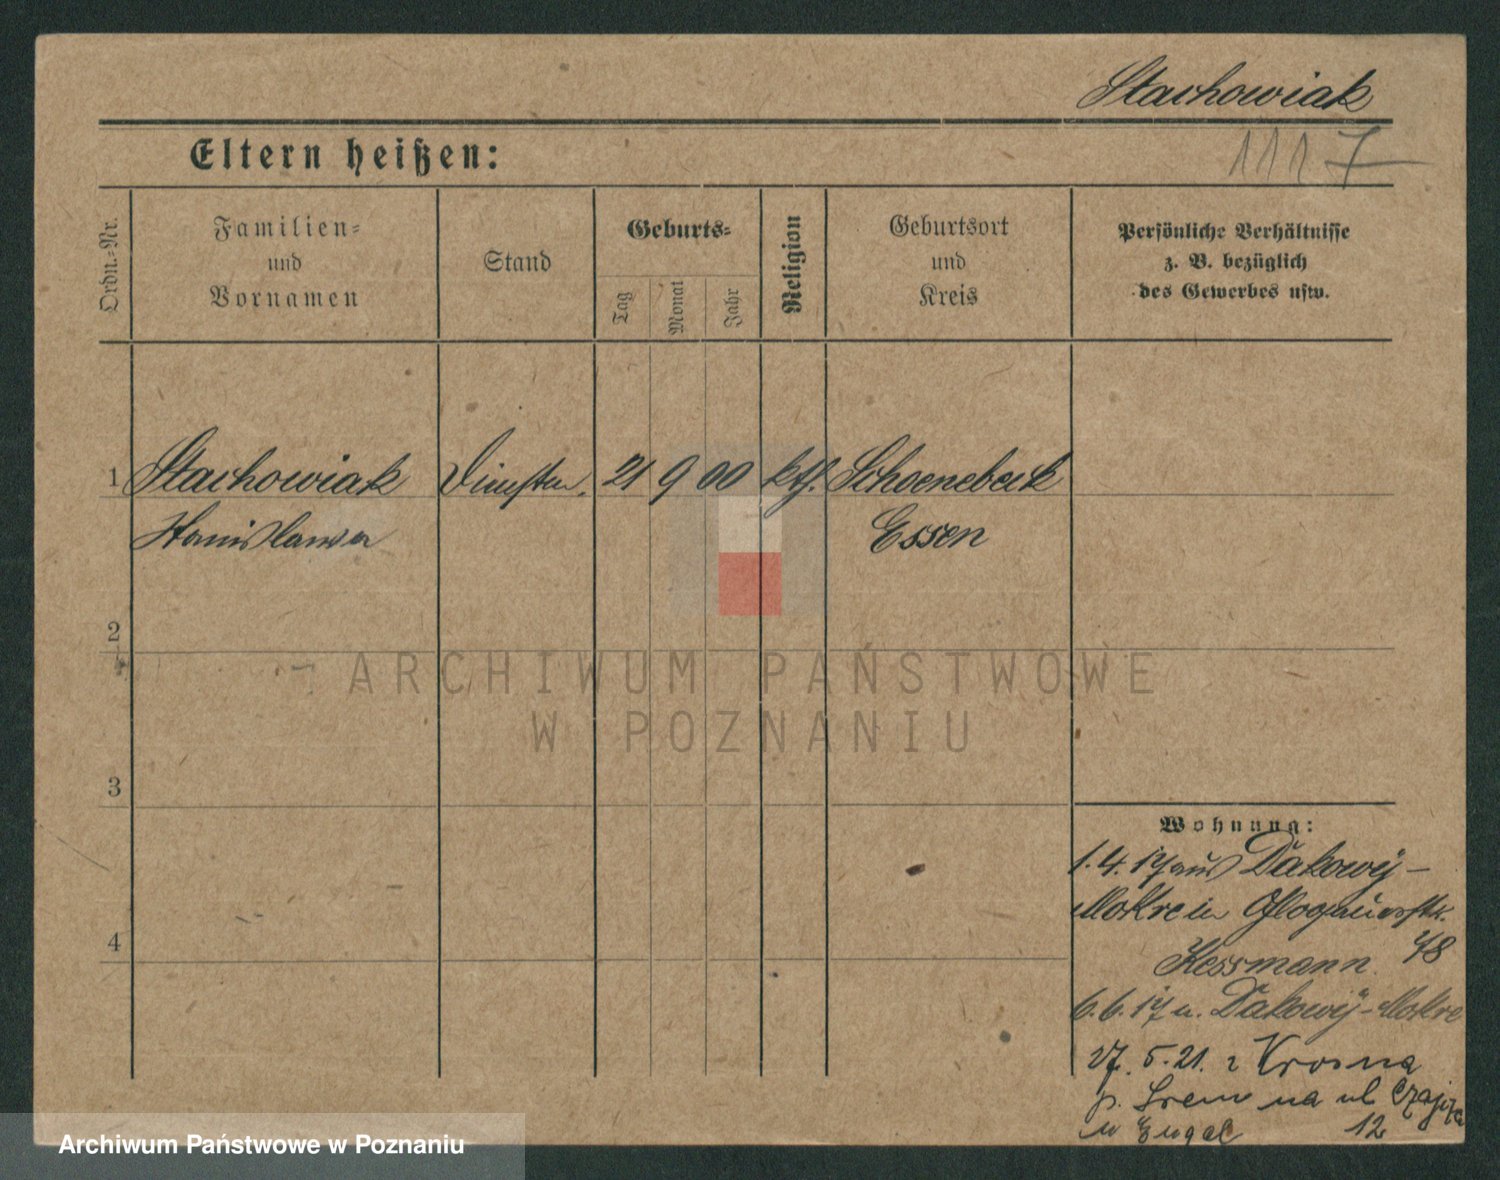 Stachowiak
1117
Eltern heißen:
Ordn.-Nr.
Familien-
und
Vornamen
Stand
Geburts-
Tag
Monat
Jahr
Religion
Geburtsort
und
Kreis
Persönliche Verhältnisse
z. B. bezüglich
des Gewerbes usw.
1 Stachowiak 21 9 00 kth. Schoenebeck
Stanislawa Essen
2
3
4
Wohnung:
1.4.17 aus Dakowÿ-
Mokre in
Kessmann. 48
6.6.17 n. Dakowÿ-Mokre
27.5.21. z Krosna
p. Śrem na ul Czajcza
u 12
ARCHIWUM PAŃSTWOWE
W POZNANIU
Archiwum Państwowe w Poznaniu